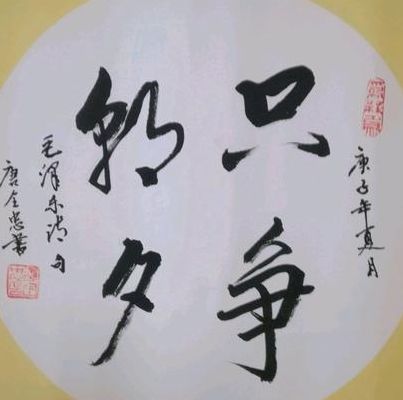 庚子年夏月
只争
朝夕
毛泽东诗句
唐全忠书